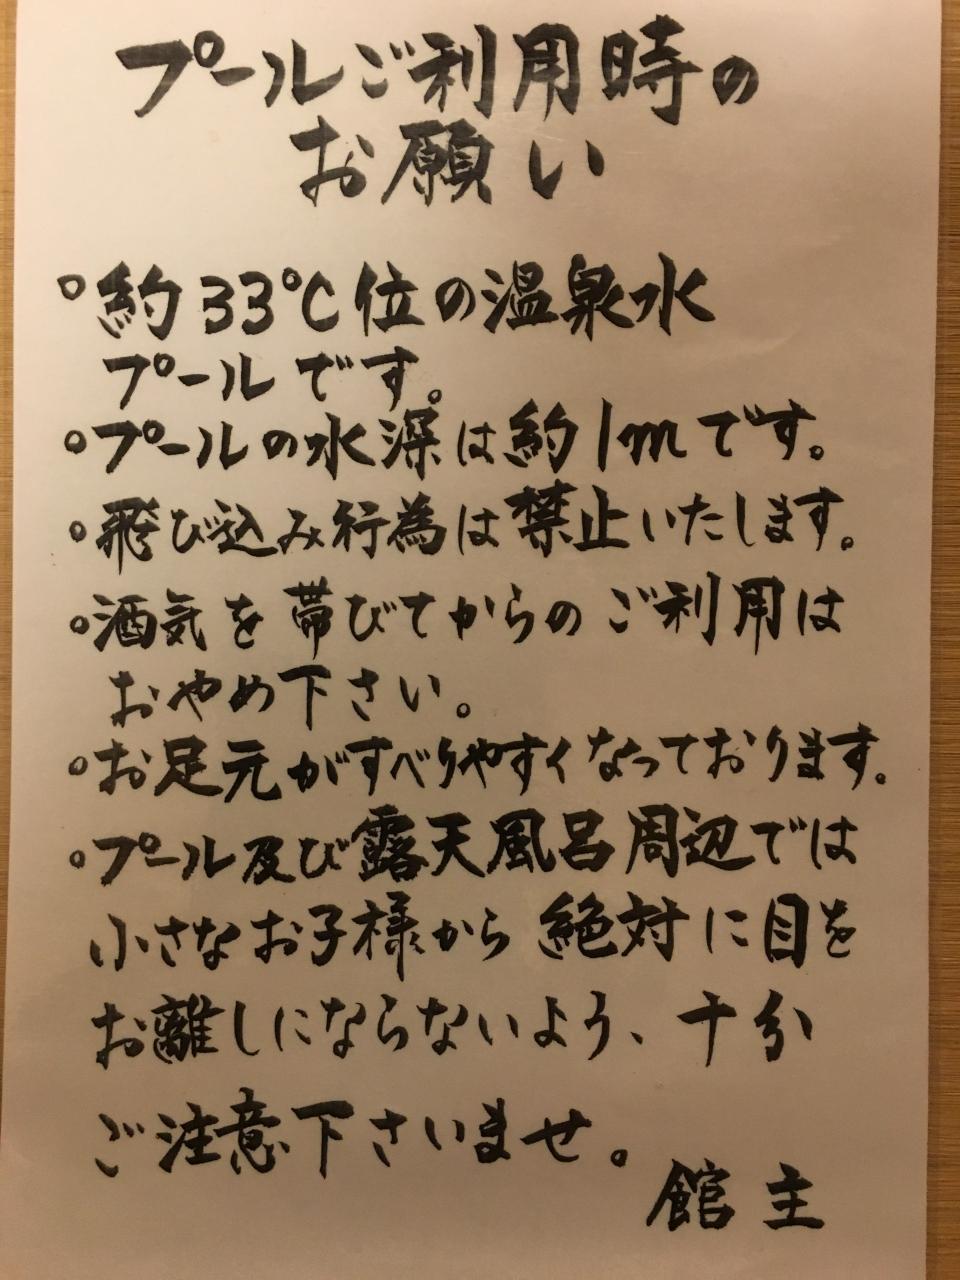 プールご利用時の
お願い
○約33℃位の温泉水
プールです。
○プールの水深は約1mです。
○飛び込み行為は禁止いたします。
○酒気を帯びてからのご利用は
おやめ下さい。
○お足元がすべりやすくなっております。
○プール及び露天風呂周辺では
小さなお子様から絶対に目を
お離しにならないよう、十分
ご注意下さいませ。
館主